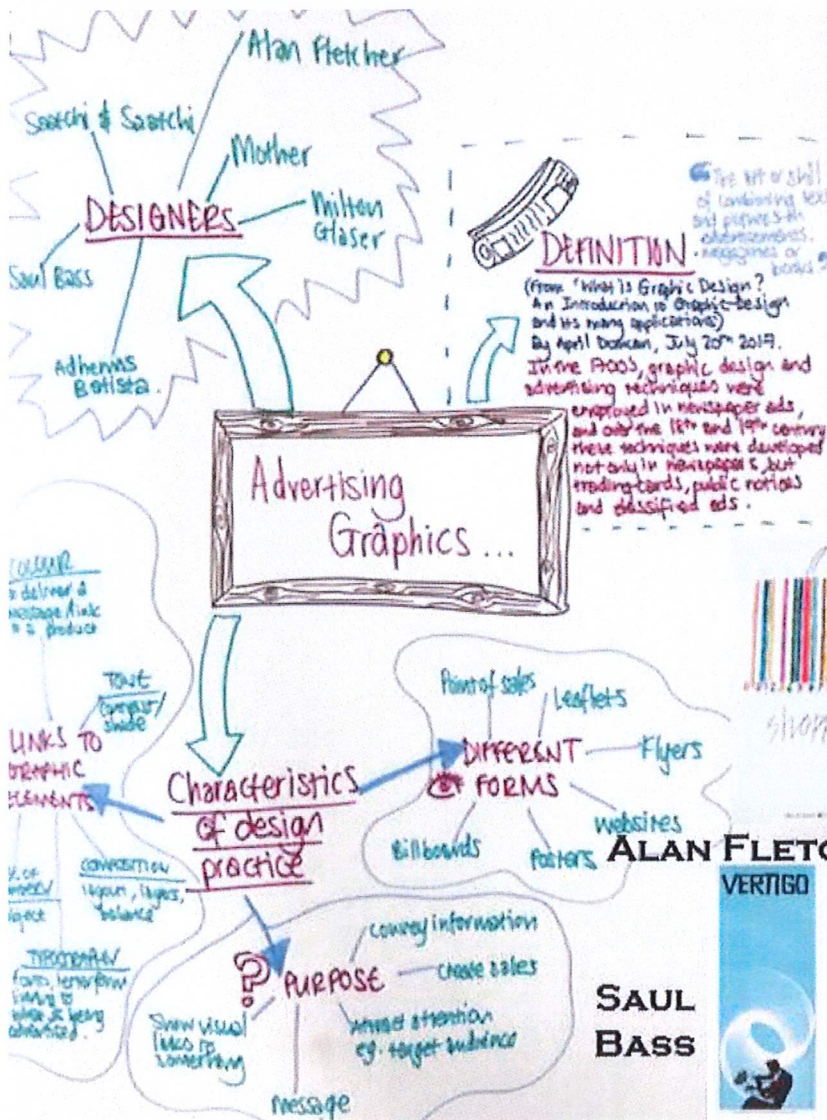 Alan Fletcher
Saatchi & Saatchi
Mother
DESIGNERS
Milton
Glaser
Saul Bass
Adhemas
Batista.
"The art or skill
of combining text
and pictures in
advertisements,
magazines or
books"
DEFINITION
(From 'What is Graphic Design?
An Introduction to Graphic Design
and its many applications)
By April Duncan, July 20th 2017.
In the 1700s, graphic design and
advertising techniques were
employed in newspaper ads,
and over the 18th and 19th century
these techniques were developed
not only in newspapers, but
trading cards, public notices
and classified ads.
Advertising
Graphics...
COLOUR
deliver a
message/link
a product
TONE
contrast/
shade
LINKS TO
GRAPHIC
ELEMENTS
COMPOSITION
layout, layers,
"balance"
TYPOGRAPHY
form, letterform
linking to
what is being
advertised.
Characteristics
of design
practice
Point of sales
Leaflets
DIFFERENT
FORMS
Flyers
Websites
Posters
Billboards
ALAN FLETC
VERTIGO
SAUL
BASS
? PURPOSE
convey information
create sales
attract attention
eg. target audience
Show visual
links to
something
message